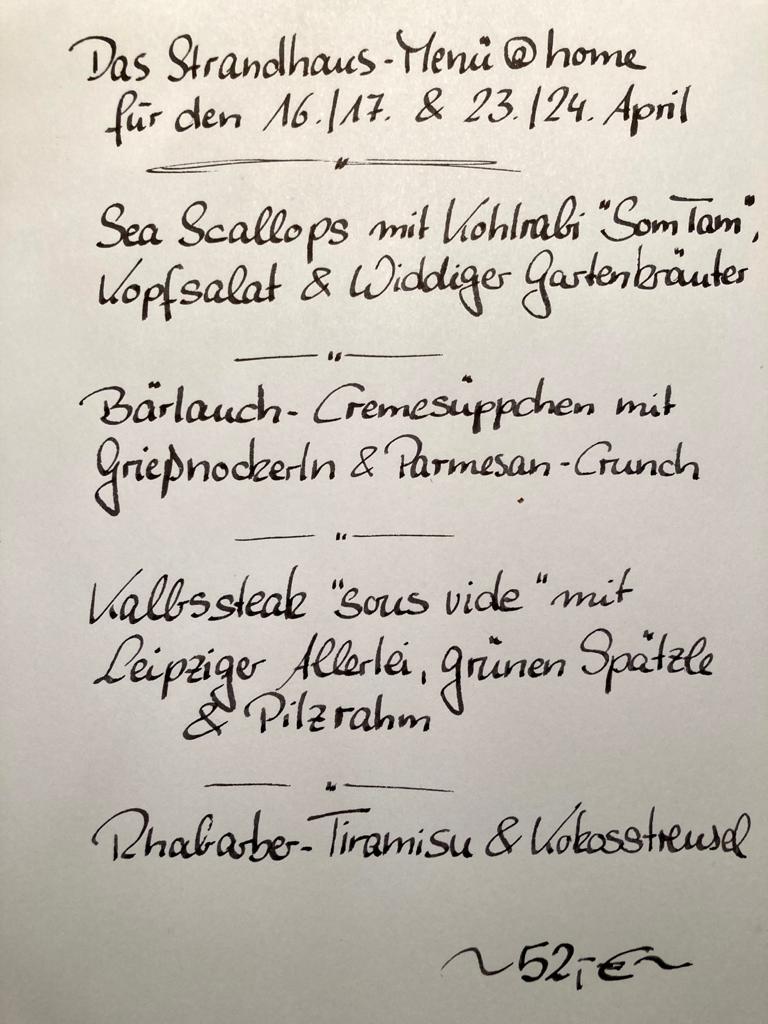 Das Strandhaus-Menü @home
für den 16./17. & 23./24. April
Sea Scallops mit Kohlrabi "Som Tam",
Kopfsalat & Widdiger Gartenkräuter
Bärlauch-Cremesüppchen mit
Grießnockerln & Parmesan-Crunch
Kalbssteak "sous vide" mit
Leipziger Allerlei, grünen Spätzle
& Pilzrahm
Rhabarber-Tiramisu & Kokosstreusel
~52,-€~